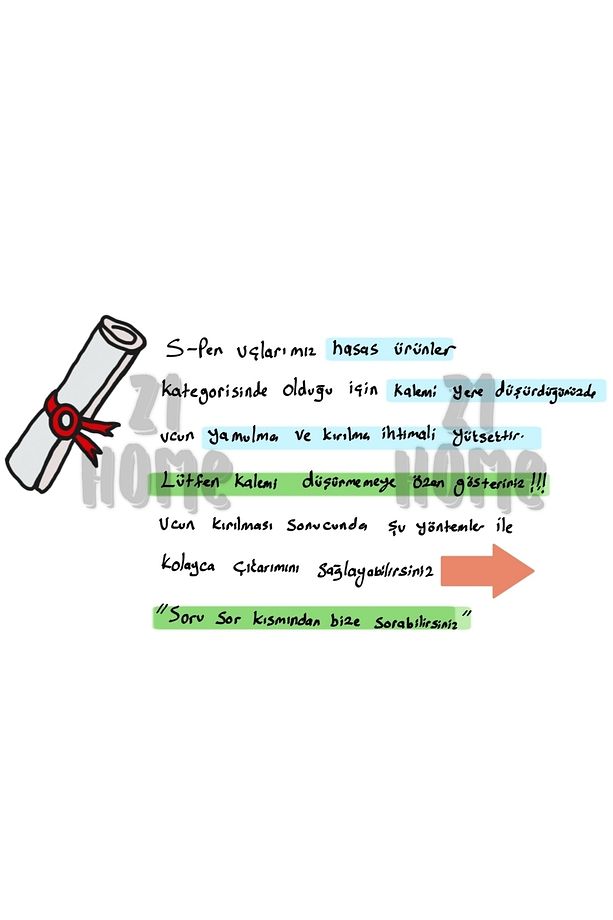 S-Pen uçlarımız hasas ürünler
kategorisinde olduğu için kalemi yere düşürdüğünüzde
ucun yamulma ve kırılma ihtimali yüksektir.
Lütfen kalemi düşürmemeye özen gösteriniz !!!
ucun kırılması sonucunda şu yöntemler ile
kolayca çıkarımını sağlayabilirsiniz
"Soru Sor kısmından bize sorabilirsiniz"
21 HOME
21 HOME